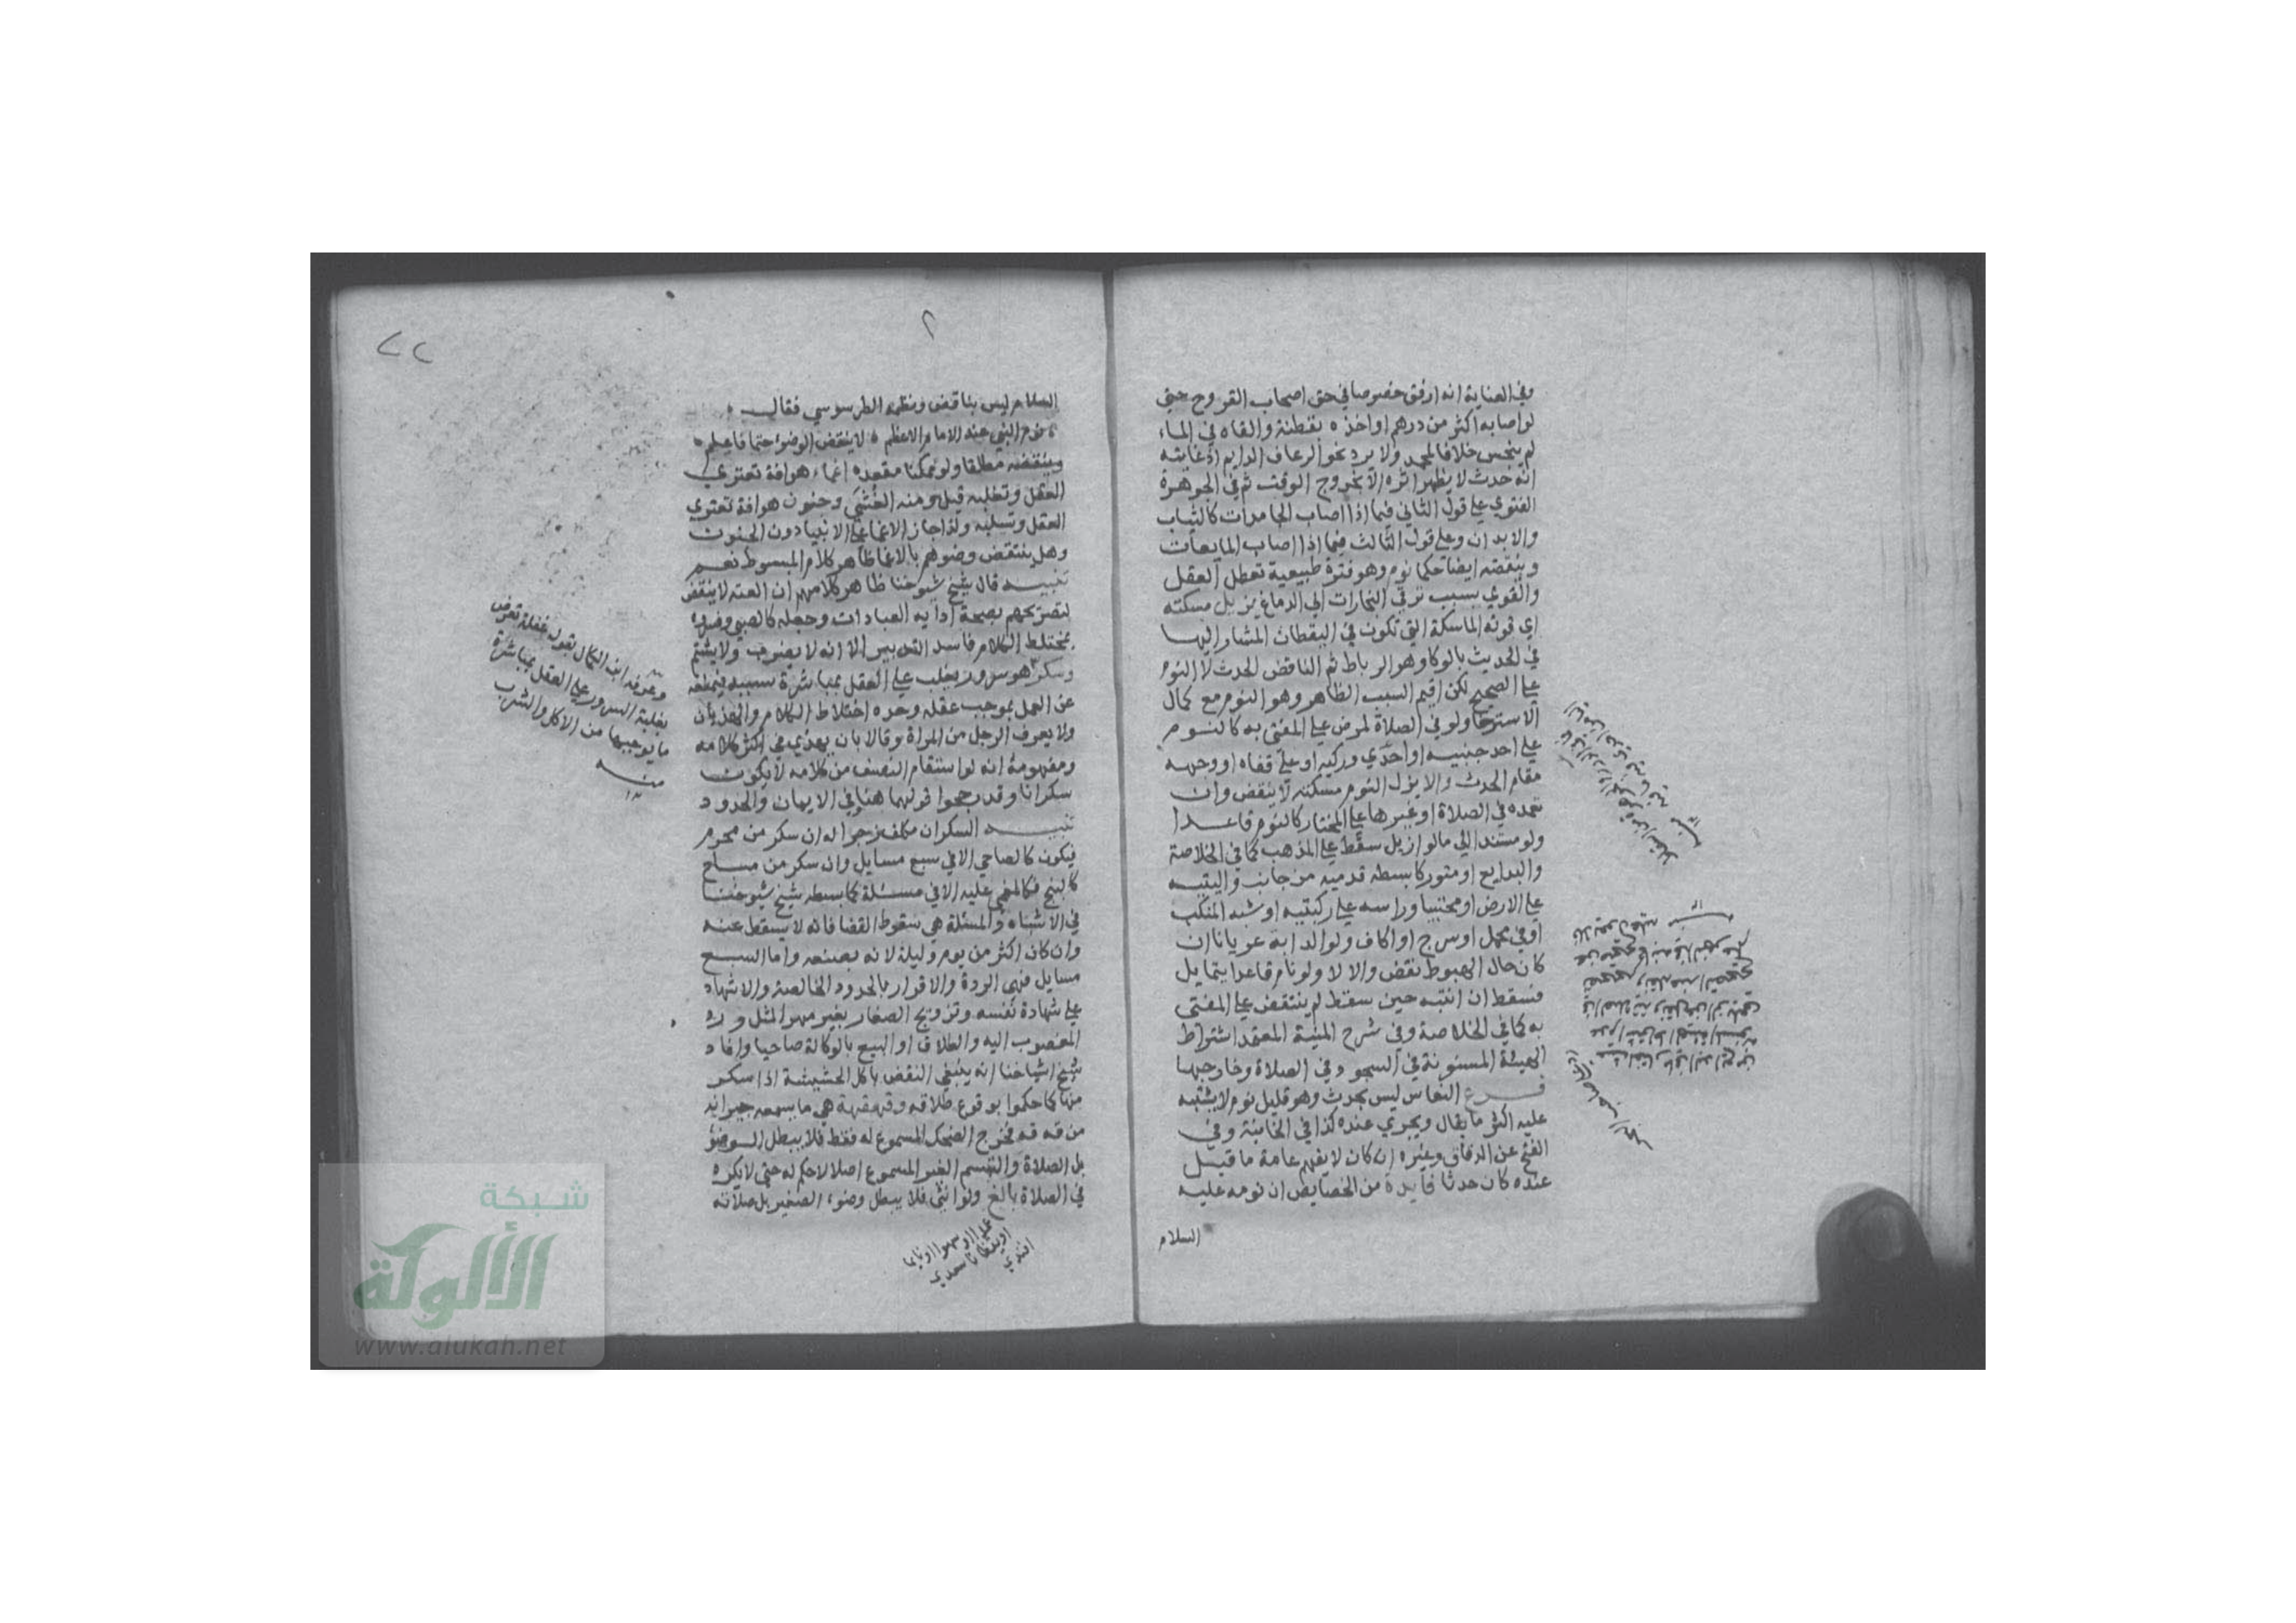 وفي العناية انه ارفق خصوصا في حق اصحاب القروح حتي
لو اصابه اكثر من درهم او اخذه بقطنة والقاه في الماء
لم ينجس خلافا لمحمد ولا يرد نحو الرعاف الدايم اذ غايته
انه حدث لا يظهر اثره الا بخروج الوقت ثم في الجوهرة
الفتوي علي قول الثاني فيما اذا اصاب الجامدات كالثياب
والابدان وعلي قول الثالث فيما اذا اصاب المايعات
وينقضه ايضا حكما نوم وهو فترة طبيعية تعطل العقل
والقوي بسبب ترقي البخارات الي الدماغ يزيل مسكته
اي قوته الماسكة التي تكون في اليقظان المشار اليها
في الحديث بالوكا وهو الرباط ثم الناقض الحدث لا النوم
علي الصحيح لكن اقيم السبب الظاهر وهو النوم مع كمال
الاسترخا ولو في الصلاة لمرض علي المفتي به كالنوم
علي احد جنبيه او احدي وركيه او علي قفاه او وجهه
مقام الحدث والا يزل النوم مسكته لا ينقض وان
تعمده في الصلاة او غيرها علي المختار كالنوم قاعدا
ولو مستندا الي ما لو ازيل سقط علي المذهب كما في الخلاصة
والبدايع او متوركا بسط قدميه من جانب واليتيه
علي الارض او محتبيا وراسه علي ركبتيه او شبه المنكب
او في محمل او سرج او اكاف ولو الدابة عريانا ان
كان حال الهبوط نقض والا لا ولو نام قاعدا يتمايل
فسقط ان انتبه حين سقط لم ينتقض علي المفتي
به كما في الخلاصة وفي شرح المنية المعتمد اشتراط
الهيئة المسنونة في السجود في الصلاة وخارجها
فرع النعاس ليس بحدث وهو قليل نوم لا يشتبه
عليه اكثر ما يقال ويجري عنده كذا في الخانية وفي
الفتح عن الدقاق وغيره ان كان لا يفهم عامة ما قيل
عنده كان حدثا فايدة من الخصايص ان نومه عليه
السلام
٢
٧٢
السلام ليس بناقض ونظمه الطرسوسي فقال
نوم النبي عند الامام الاعظم لا ينقض الوضوء حتما فاعلم
وينقضه مطلقا ولو ممكنا مقعده اغماء هو افة تعتري
العقل وتغلبه قيل ومنه الغشي وجنون هو افة تعتري
العقل وتسلبه ولذا جاز الاغما علي الانبيا دون الجنون
وهل ينتقض وضوهم بالاغما ظاهر كلام المبسوط نعم
تنبيه قال شيخ شيوخنا ظاهر كلامهم ان العته لا ينقض
لتصريحهم بصحة ادايه العبادات وجعله كالصبي وفسروه
بمختلط الكلام فاسد التدبير الا انه لا يضرب ولا يشتم
وسكر هو سرور يغلب علي العقل بمباشرة سببه فيمنعه
عن العمل بموجب عقله وحده اختلاط الكلام والهذيان
ولا يعرف الرجل من المراة وقالا بان يهذي في اكثر كلامه
ومفهومه انه لو استقام النصف من كلامه لا يكون
سكرانا وقد رجحوا قولهما هنا في الايمان والحدود
تنبيه السكران مكلف زجرا له ان سكر من محرم
فيكون كالصاحي الا في سبع مسايل وان سكر من مباح
كالبنج فكالمغمي عليه الا في مسئلة كما بسطه شيخ شيوخنا
في الاشباه والمسئلة هي سقوط القضا فانه لا يسقط عنه
وان كان اكثر من يوم وليلة لانه بصنعه واما السبع
مسايل فهي الردة والاقرار بالحدود الخالصة والاشهاد
علي شهادة نفسه وتزويج الصغار بغير مهر المثل ورد
المغصوب اليه والطلاق او البيع بالوكالة صاحيا وافاد
شيخ اشياخنا انه ينبغي النقض باكل الحشيشة اذا سكر
منها كما حكموا بوقوع طلاقه وقهقهة هي ما يسمعه جيرانه
من قه قه فخرج الضحك المسموع له فقط فلا يبطل الوضو
بل الصلاة والتبسم الغير المسموع اصلا لا حكم له حتي لا يكره
في الصلاة بالغ ولو انثي فلا يبطل وضوء الصغير بل صلاته
عمدا او سهوا او نايما
او يقظانا سعدي
افندي
وعرفه ابن الكمال بقوله غفلة تعرض
بغلبة السرور علي العقل بمباشرة
ما يوجبها من الاكل والشرب
منه
شبكة
الألوكة
www.alukah.net